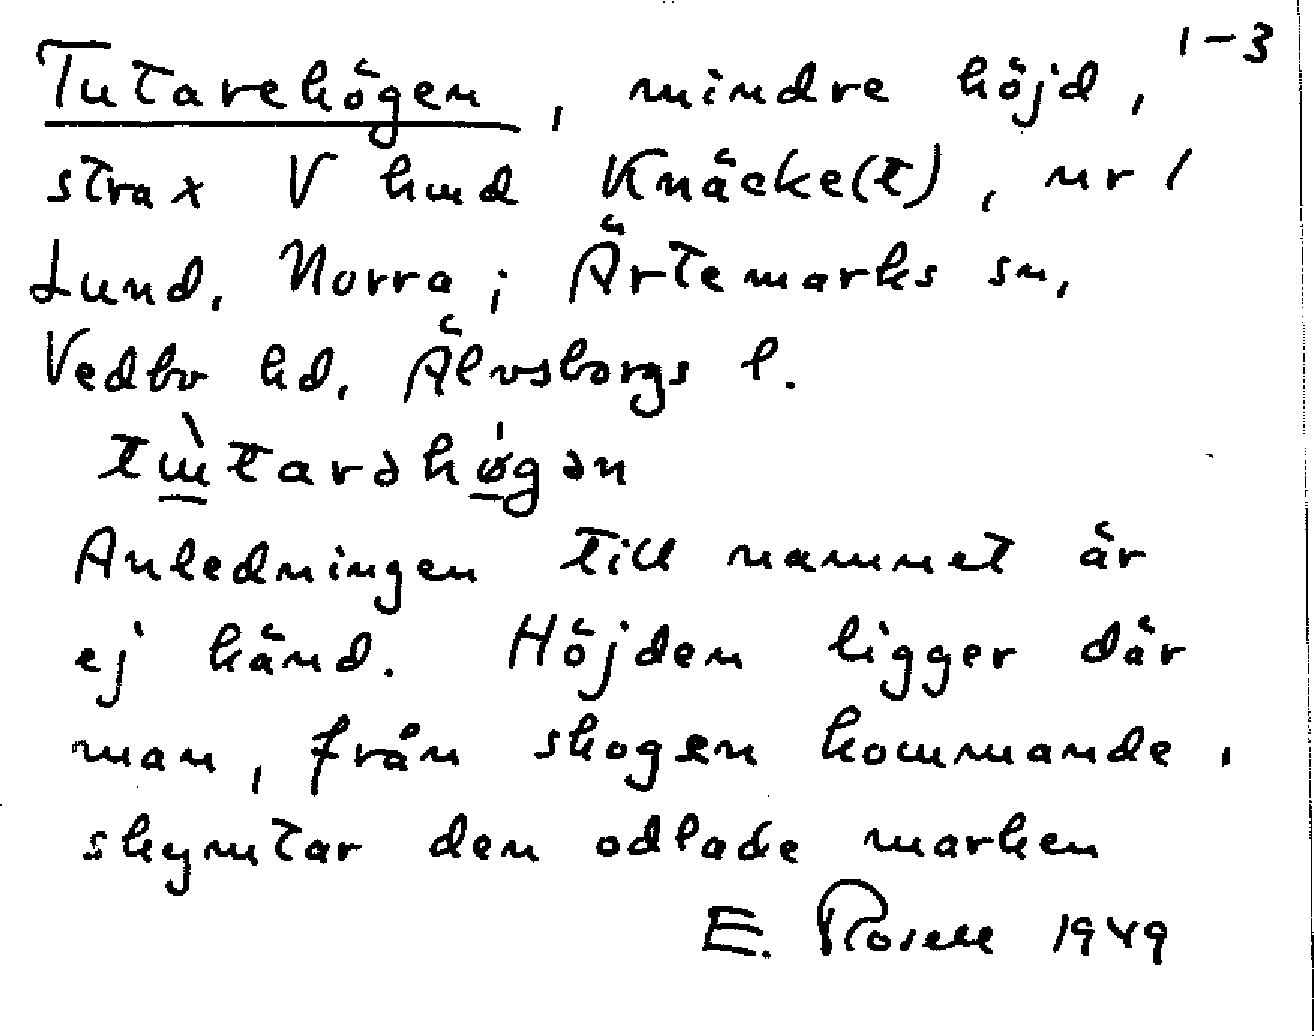 1-3
Tutarehögen, mindre höjd,
strax V hmd Knäcke(t), nr 1
Lund, Norra; Ärtemarks sn,
Vedbo hd, Älvsborgs l.
tɯ̀tarəhǿgən
Anledningen till namnet är
ej känd. Höjden ligger där
man, från skogen kommande,
skymtar den odlade marken
E. Rosell 1949